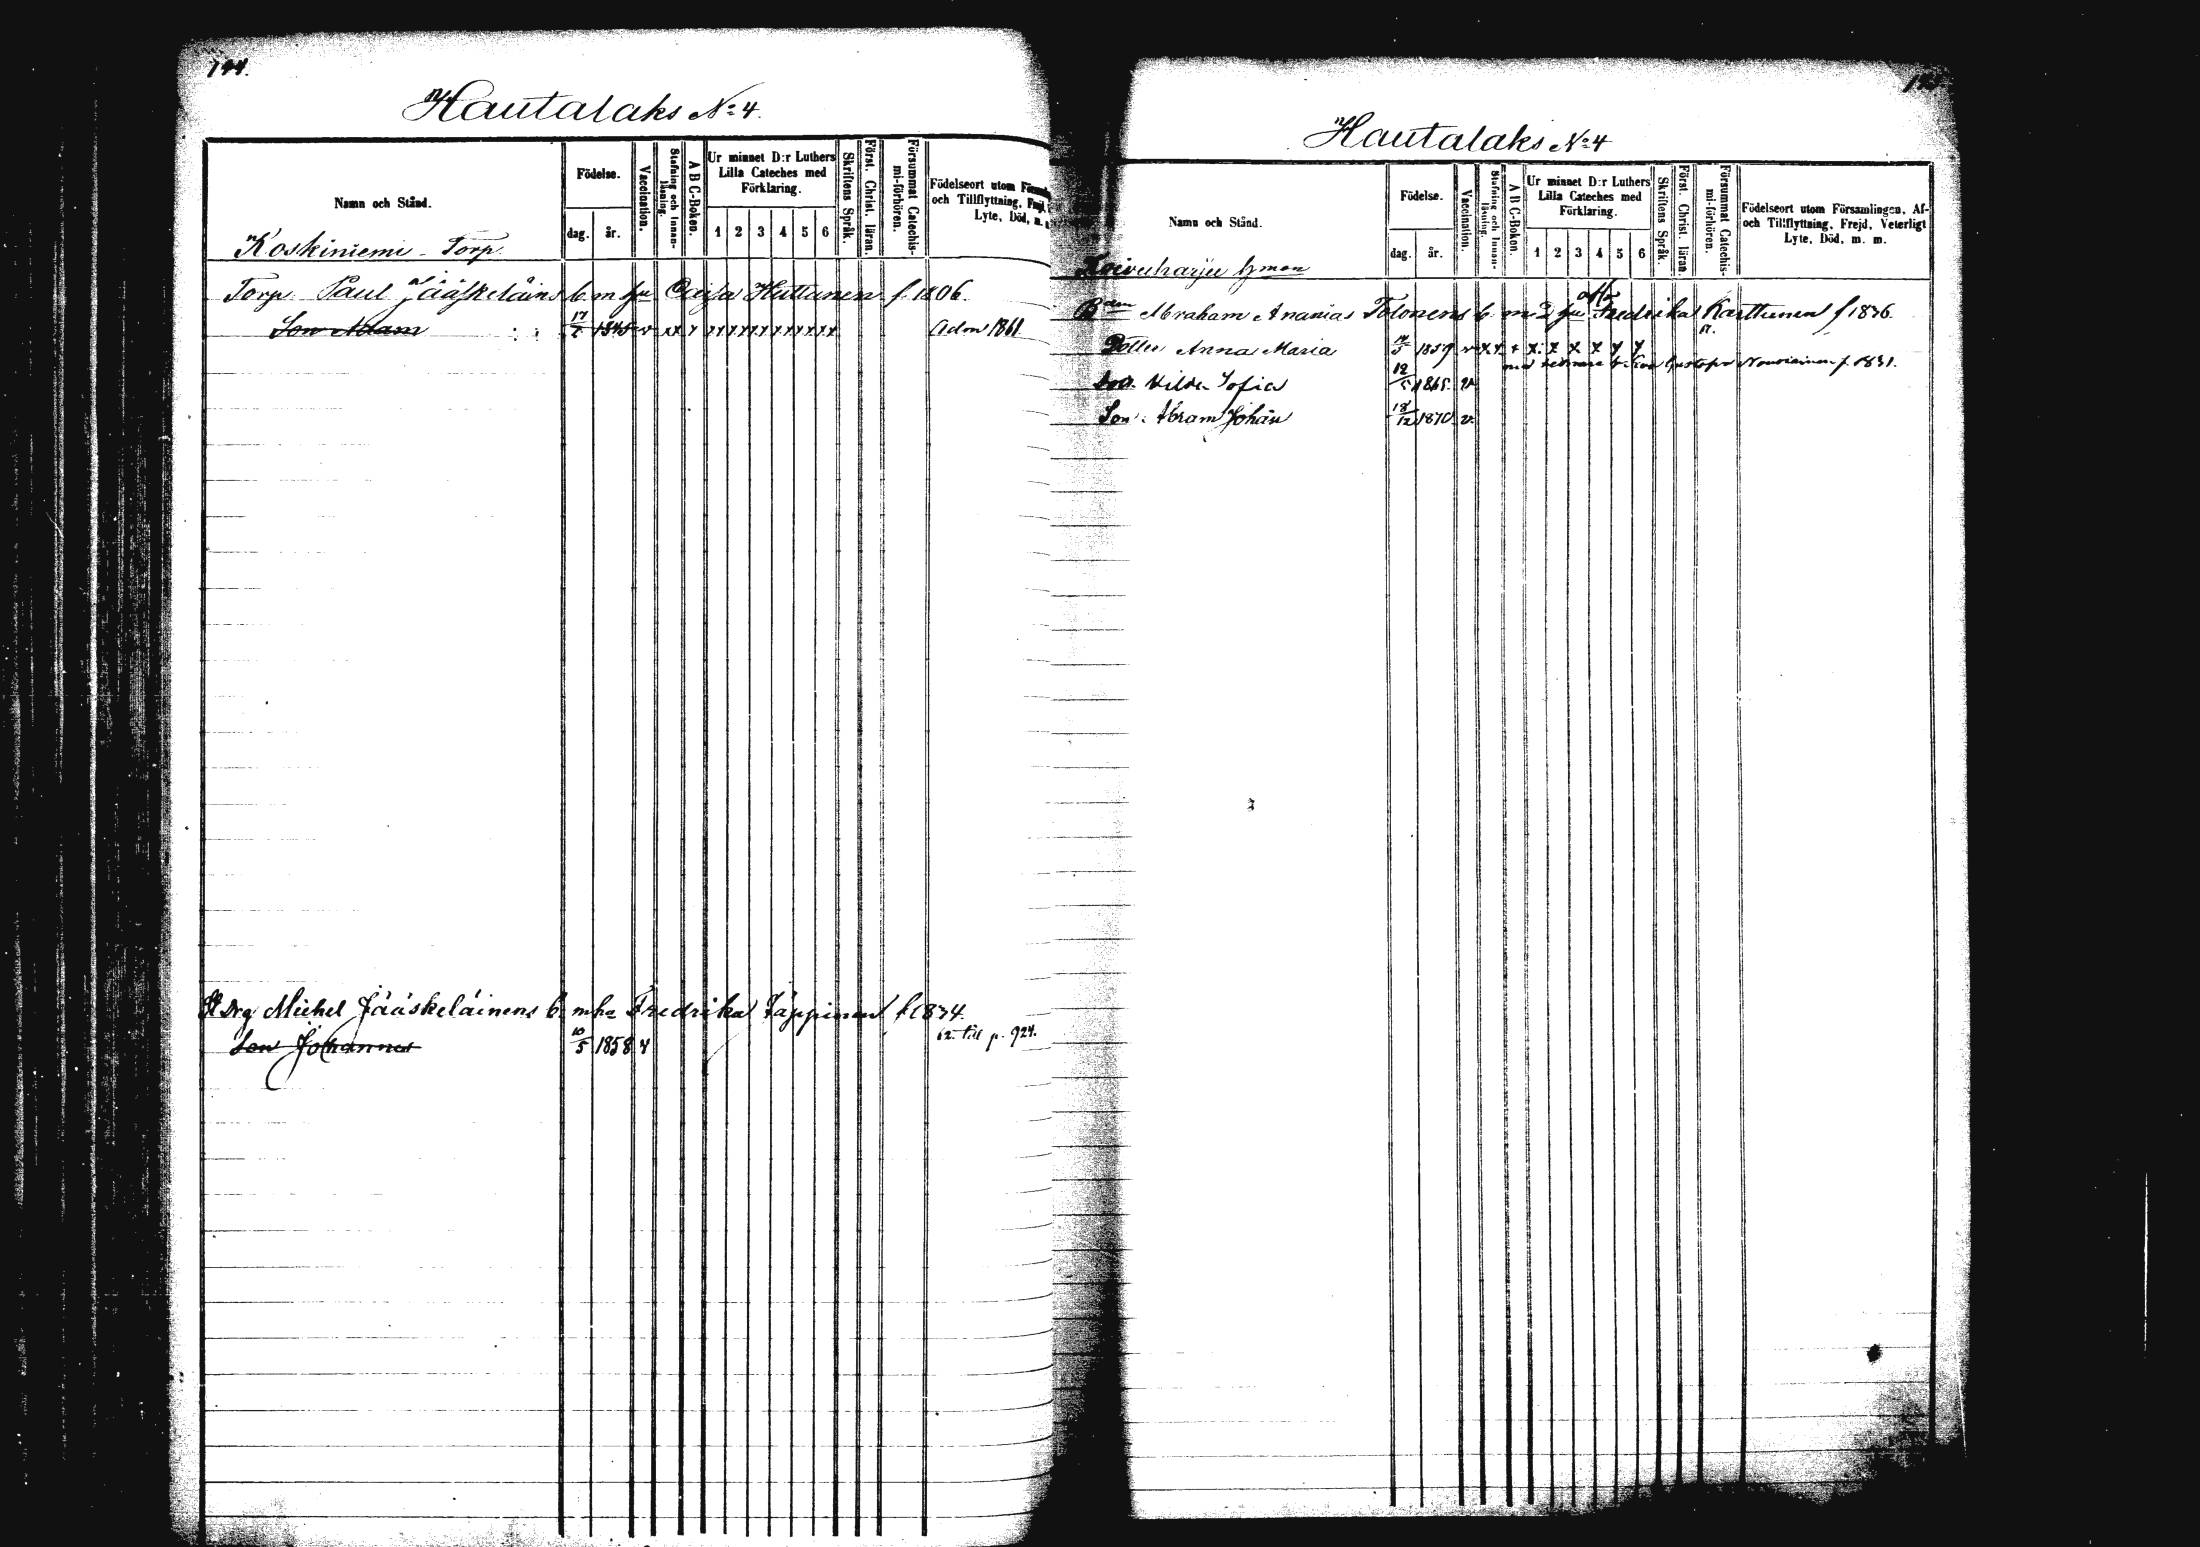 194.
Hautalaks No 4.
Namn och Stånd.
Födelse.
dag. år.
Vaccination.
Stafning och Innan-läsning.
A B C-Boken.
Ur minnet D:r Luthers
Lilla Cateches med
Förklaring.
1 2 3 4 5 6
Skriftens Språk.
Först. Christ. läran.
Försummat Catechis-
mi-förhören.
Födelseort utom
och Tillflyttning,
Lyte, Död, m.
Koskiniemi Torp.
Torp Paul Jääskeläins b. m hu Cajsa Huttunen f. 1806.
Son Adam 1845 v xx x x x x x x x Adm 1861
Drg Michel Jääskeläinens b. m hu Fredrika Täppinen f. 1834.
Son Johannes 10/5 1858 v 62 till p. 924.
Hautalaks No 4
Namn och Stånd.
Födelse.
dag. år.
Vaccination.
Stafning och Innan-läsning.
A B C-Boken.
Ur minnet D:r Luthers
Lilla Cateches med
Förklaring.
1 2 3 4 5 6
Skriftens Språk.
Först. Christ. läran.
Försummat Catechis-
mi-förhören.
Födelseort utom Församlingen, Af-
och Tillflyttning, Frejd, Veterligt
Lyte, Död, m. m.
Koivuharju
Abraham Ananias Tolonens b. m 2 hu Fredrika Karttunen f 1836.
Dotter Anna Maria 1859 v x x x x x x x x x
Gustafva Nousiainen f. 1831.
Hilda Sofia 12/5 1865. v.
Son Abram Johan 18/12 1870 v.